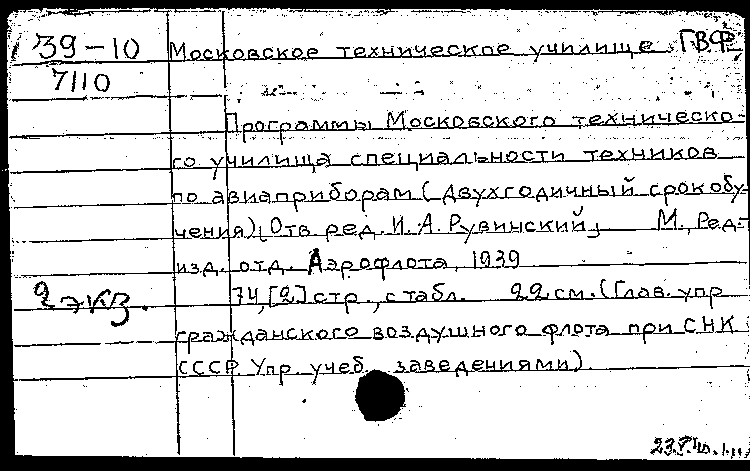 39-10
7110
Московское техническое училище ГВФ
Программы Московского техническо-
го училища специальности техников
по авиаприборам (двухгодичный срок обу-
чения) [Отв. ред. И. А. Рувинский] М., Ред.-
изд. отд. Аэрофлота, 1939
2 экз.
74, [2] стр., с табл. 22 см. (Глав. упр
гражданского воздушного флота при СНК
СССР. Упр. учеб. заведениями).